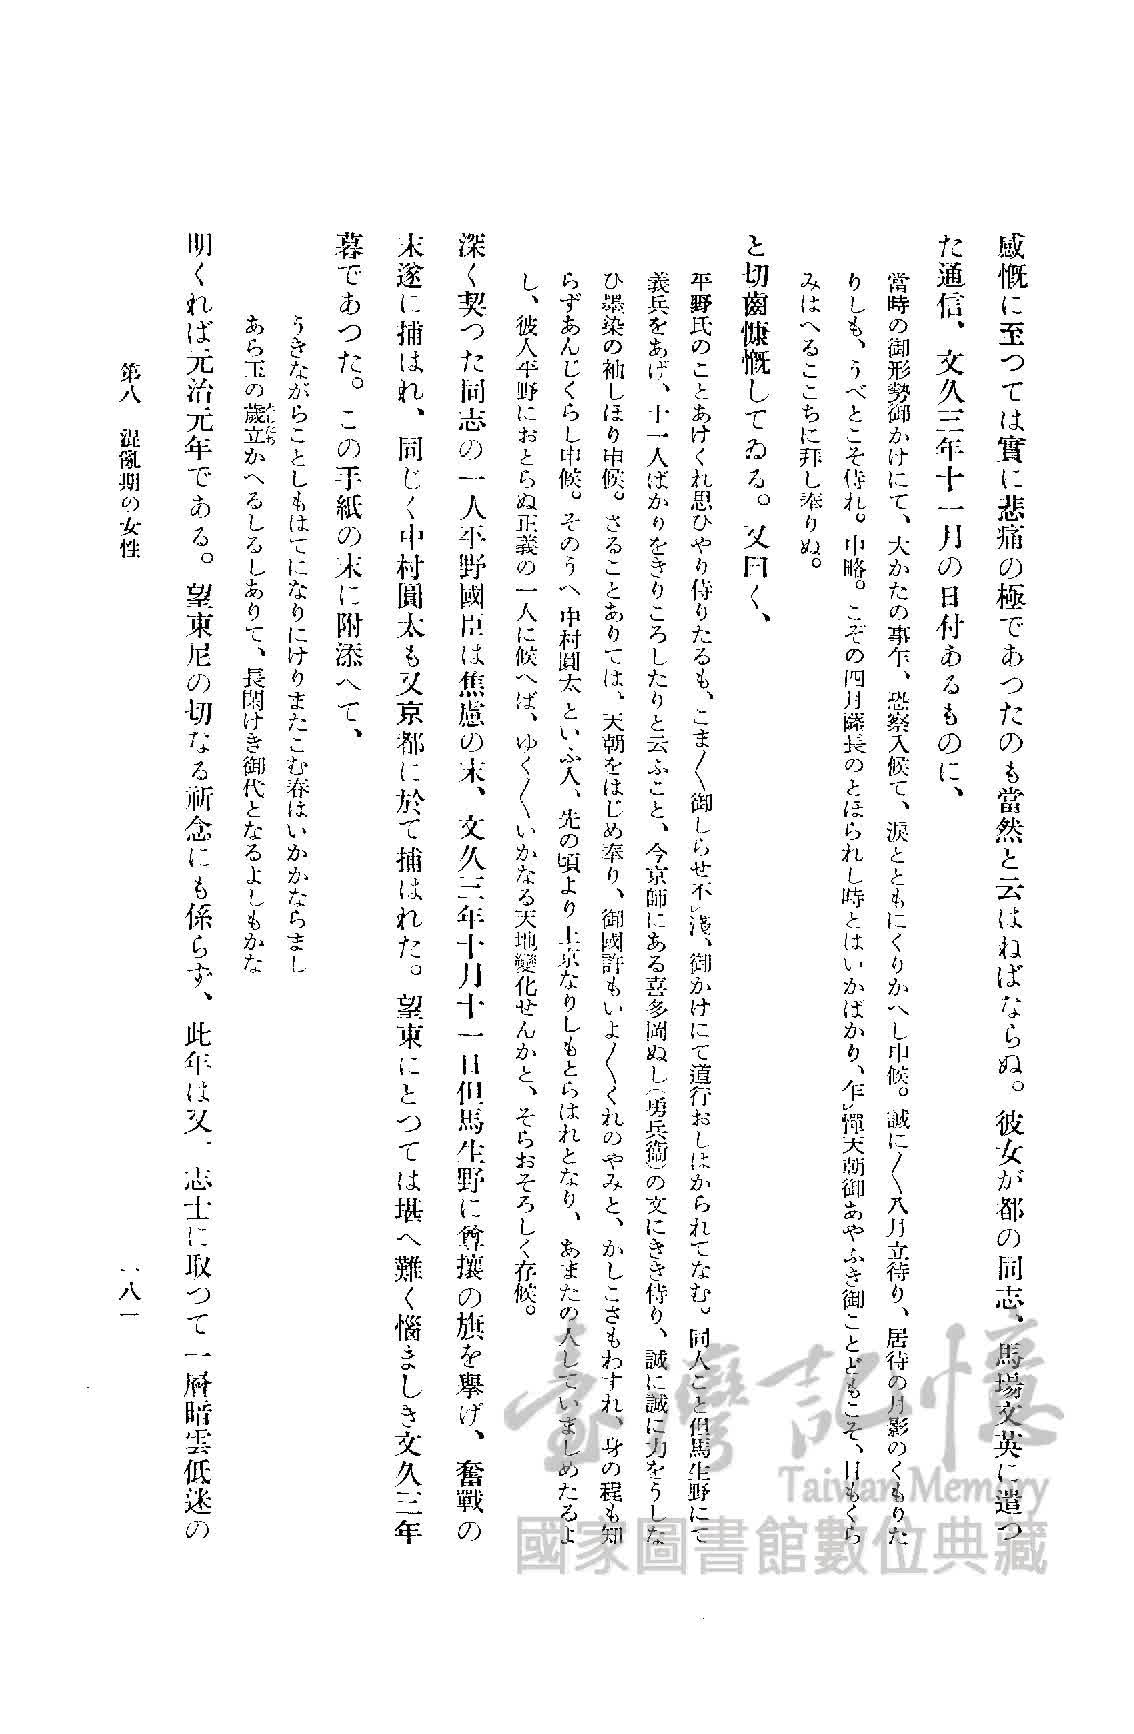 感慨に至つては實に悲痛の極であつたのも當然と云はねばならぬ。彼女が都の同志、馬場文英に遣つ
た通信、文久三年十一月の日付あるものに、
當時の御形勢御かけにて、大かたの事乍、恐察入候て、淚とともにくりかへし申候。誠に〳〵八月立待り、居待の月影のくもりた
りしも、うべとこそ侍れ。中略。こぞの四月薩長のとほられし時とはいかばかり、乍レ憚天朝御あやふき御ことどもこそ、目もくら
みはへるここちに拜し奉りぬ。
と切齒慷慨してゐる。又曰く、
平野氏のことあけくれ思ひやり侍りたるも、こま〳〵御しらせ不レ淺、御かけにて道行おしはかられてなむ。同人こと但馬生野にて
義兵をあげ、十一人ばかりをきりころしたりと云ふこと、今京師にある喜多岡ぬし(勇兵衞)の文にきき侍り、誠に誠に力をうしな
ひ墨染の袖しほり申候。さることありては、天朝をはじめ奉り、御國許もいよ〳〵くれのやみと、かしこさもわすれ、身の程も知
らずあんじくらし申候。そのうへ中村圓太といふ人、先の頃より上京なりしもとらはれとなり、あまたの人していましめたるよ
し、彼人平野におとらぬ正義の一人に候へば、ゆく〳〵いかなる天地變化せんかと、そらおそろしく存候。
深く契つた同志の一人平野國臣は焦慮の末、文久三年十月十一日但馬生野に尊攘の旗を擧げ、奮戰の
末遂に捕はれ、同じく中村圓太も又京都に於て捕はれた。望東にとつては堪へ難く惱ましき文久三年
暮であつた。この手紙の末に附添へて、
うきながらことしもはてになりにけりまたこむ春はいかかならまし
あら玉の歲立かへるしるしありて、長閑けき御代となるよしもかな
明くれば元治元年である。望東尼の切なる祈念にも係らず、此年は又、志士に取つて一層暗雲低迷の
第八 混亂期の女性
一八一
臺灣記憶
Taiwan Memory
國家圖書館數位典藏